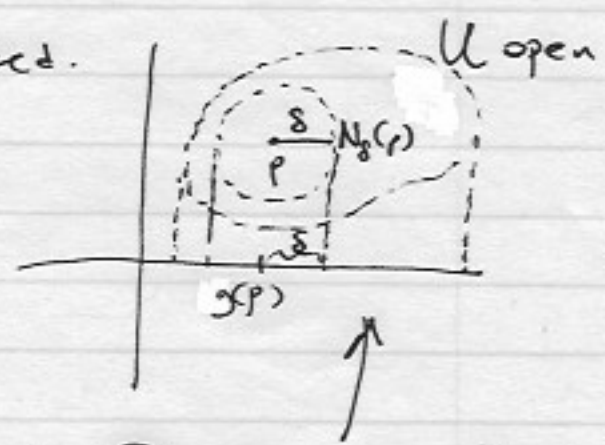 ed.
U open
δ
N_δ(p)
p
δ
g(p)